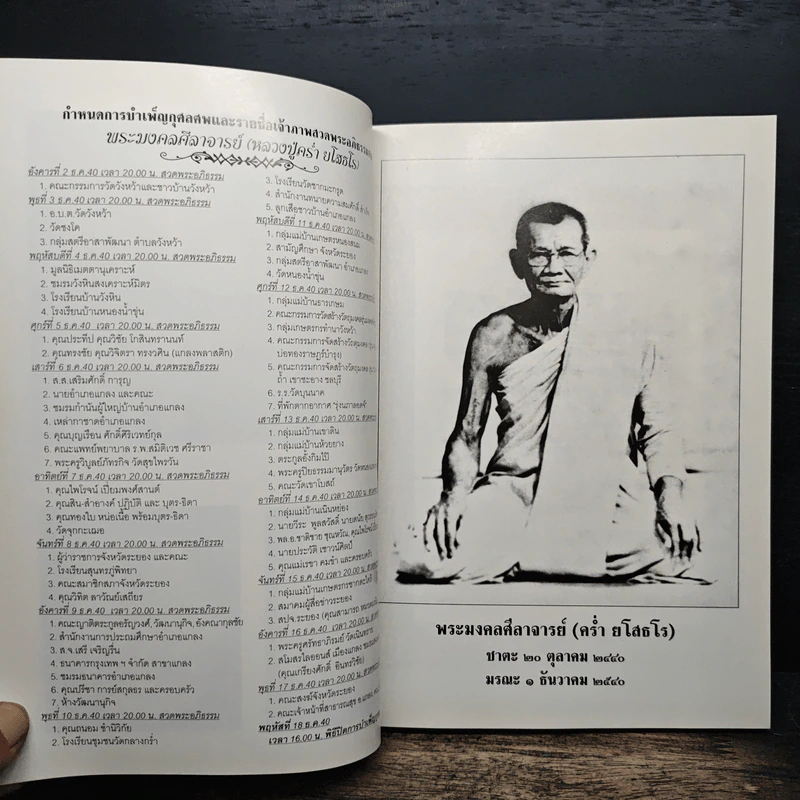 กำหนดการบำเพ็ญกุศลศพและรายชื่อเจ้าภาพสวดพระอภิธรรม
พระมงคลศีลาจารย์ (หลวงปู่คร่ำ ยโสธโร)
อังคารที่ 2 ธ.ค.40 เวลา 20.00 น. สวดพระอภิธรรม
1. คณะกรรมการวัดวังหว้าและชาวบ้านวังหว้า
พุธที่ 3 ธ.ค.40 เวลา 20.00 น. สวดพระอภิธรรม
1. อ.บ.ต.วัดวังหว้า
2. วัดชงโค
3. กลุ่มสตรีอาสาพัฒนา ตำบลวังหว้า
พฤหัสบดีที่ 4 ธ.ค.40 เวลา 20.00 น. สวดพระอภิธรรม
1. มูลนิธิเมตตานุเคราะห์
2. ชมรมวังหินสงเคราะห์มิตร
3. โรงเรียนบ้านวังหิน
4. โรงเรียนบ้านหนองน้ำขุ่น
ศุกร์ที่ 5 ธ.ค.40 เวลา 20.00 น. สวดพระอภิธรรม
1. คุณประทีป คุณวิชัย โกสินทรานนท์
2. คุณทรงชัย คุณวิจิตรา ทรงวศิน (แกลงพลาสติก)
เสาร์ที่ 6 ธ.ค.40 เวลา 20.00 น. สวดพระอภิธรรม
1. ส.ส.เสริมศักดิ์ การุญ
2. นายอำเภอแกลง และคณะ
3. ชมรมกำนันผู้ใหญ่บ้านอำเภอแกลง
4. เหล่ากาชาดอำเภอแกลง
5. คุณบุญเรือน ศักดิ์ศิริเวทย์กุล
6. คณะแพทย์พยาบาล ร.พ.สมิติเวช ศรีราชา
7. พระครูวิบูลย์ภัทรกิจ วัดสุขไพรวัน
อาทิตย์ที่ 7 ธ.ค.40 เวลา 20.00 น. สวดพระอภิธรรม
1. คุณไพโรจน์ เปี่ยมพงศ์สานต์
2. คุณสิน-สำอางค์ ปฏิบัติ และ บุตร-ธิดา
3. คุณทองใบ หน่อเนื้อ พร้อมบุตร-ธิดา
4. วัดจุกกะเฌอ
จันทร์ที่ 8 ธ.ค.40 เวลา 20.00 น. สวดพระอภิธรรม
1. ผู้ว่าราชการจังหวัดระยอง และคณะ
2. โรงเรียนสุนทรภู่พิทยา
3. คณะสมาชิกสภาจังหวัดระยอง
4. คุณวิทิต ลาวัณย์เสถียร
อังคารที่ 9 ธ.ค.40 เวลา 20.00 น. สวดพระอภิธรรม
1. คณะญาติตระกูลอรัญวงศ์, วัฒนานุกิจ, อังคณากุลชัย
2. สำนักงานการประถมศึกษาอำเภอแกลง
3. ส.จ.เสรี เจริญรื่น
4. ธนาคารกรุงเทพ ฯ จำกัด สาขาแกลง
5. ชมรมธนาคารอำเภอแกลง
6. คุณปรีชา การย์สกุลธร และครอบครัว
7. ห้างวัฒนานุกิจ
พุธที่ 10 ธ.ค.40 เวลา 20.00 น. สวดพระอภิธรรม
1. คุณถนอม ชำนิวิกัย
2. โรงเรียนชุมชนวัดกลางกร่ำ
3. โรงเรียนวัดชากมะกรูด
4. สำนักงานทนายความสมศักดิ์
5. ลูกเสือชาวบ้านอำเภอแกลง
พฤหัสบดีที่ 11 ธ.ค.40 เวลา 20.00 น.
1. กลุ่มแม่บ้านเกษตรหนองสนม
2. สามัญศึกษา จังหวัดระยอง
3. กลุ่มสตรีอาสาพัฒนา อำเภอแกลง
4. วัดหนองน้ำขุ่น
ศุกร์ที่ 12 ธ.ค.40 เวลา 20.00 น.
1. กลุ่มแม่บ้านธารเกษม
2. คณะกรรมการวัดสร้างวัตถุมงคล
3. กลุ่มเกษตรกรทำนาวังหว้า
4. คณะกรรมการจัดสร้างวัตถุมงคล
บ่อทองราษฎร์บำรุง)
5. คณะกรรมการจัดสร้างวัตถุมงคล
ถ้ำ เขาชะอาง ชลบุรี
6. ร.ร.วัดบุนนาค
7. ที่พักตากอากาศ
เสาร์ที่ 13 ธ.ค.40 เวลา 20.00 น.
1. กลุ่มแม่บ้านเขาดิน
2. กลุ่มแม่บ้านห้วยยาง
3. ตระกูลอั้งกิมไป๊
4. พระครูปิยธรรมมานุวัตร
5. คณะวัดเขาโบสถ์
อาทิตย์ที่ 14 ธ.ค.40 เวลา 20.00 น.
1. กลุ่มแม่บ้านเนินหย่อง
2. นายวีระ พูลสวัสดิ์
3. พล.อ.ชาติชาย ชุณหวัณ
4. นายประวัติ เชาวน์ศิลป์
5. คุณแม่เรขา คมขำ และครอบครัว
จันทร์ที่ 15 ธ.ค.40 เวลา 20.00 น.
1. กลุ่มแม่บ้านเกษตรกร
2. สมาคมผู้สื่อข่าวระยอง
3. สปจ.ระยอง (คุณสามารถ
อังคารที่ 16 ธ.ค.40 เวลา 20.00 น.
1. พระครูศรัทธาภิรมย์ วัดเนิน
2. สโมสรไลออนส์ เมืองแกลง
(คุณเกรียงศักดิ์ อินทรวิชัย)
พุธที่ 17 ธ.ค.40 เวลา 20.00 น.
1. คณะสงฆ์จังหวัดระยอง
2. คณะเจ้าหน้าที่สาธารณสุข อ.แกลง
พฤหัสที่ 18 ธ.ค.40
เวลา 16.00 น. พิธีปิดการบำเพ็ญ
พระมงคลศีลาจารย์ (คร่ำ ยโสธโร)
ชาตะ ๒๐ ตุลาคม ๒๔๔๐
มรณะ ๑ ธันวาคม ๒๕๔๐